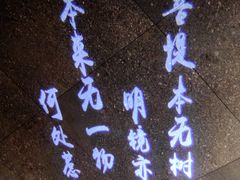 菩提本无树
明镜亦
本来无一物
何处惹